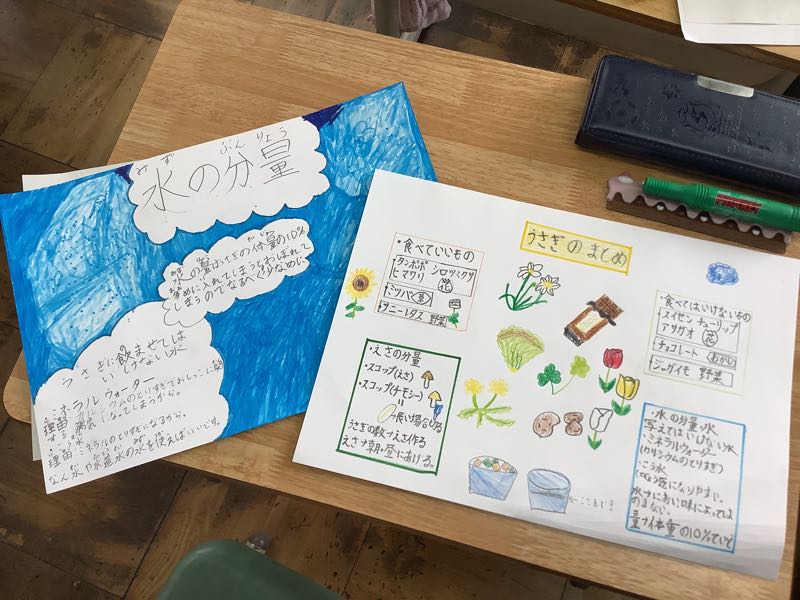 みず ぶんりょう
水の分量
水の量はうさぎの体重の10%
入れてしまうとおぼれて
しまうのでなるべく少なめに
うさぎに飲ませてしま
いけない水
ミネラルウォーター
理由
病気になってしまうから。
こう水
理由 ミネラルのとりすぎになるから。
なん水や水道水の水を使えばいいです。
うさぎのまとめ
・食べていいもの
タンポポ シロツメクサ
ヒマワリ 花
ミツバ
サニーレタス 野菜
・えさの分量
・スコップ(えさ)
・スコップ(チモシー)
長い場合
うさぎの数→えさ作る
えさ→朝・昼にあげる。
・食べてはいけないもの
スイセン チューリップ
アサガオ 花
チョコレート おかし
ジャガイモ 野菜
・水の分量・水
写えてはいけない水
・ミネラルウォーター
(カリシウムのとりすぎ)
・こう水
になりやすい。
水→におい味によっては
のまない。
量→体重の10%ていど
ここまで